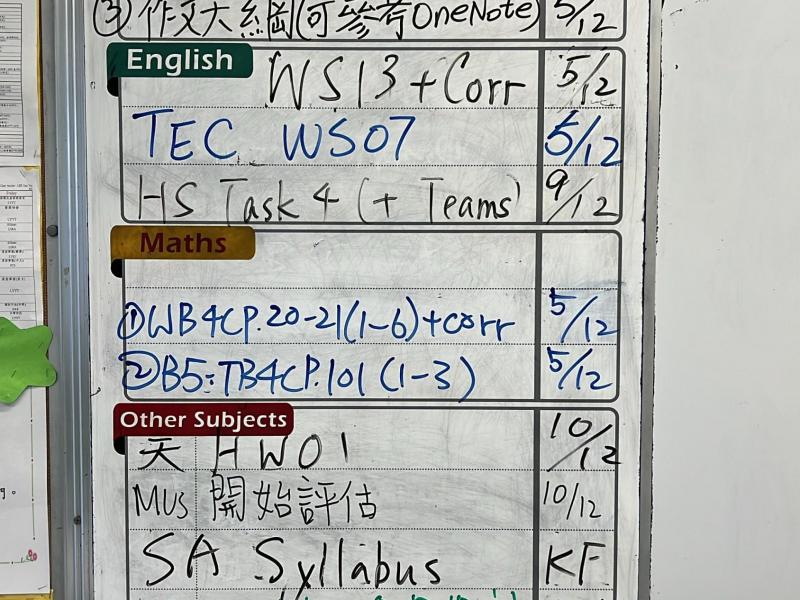 ③ 作文大綱(可參考OneNote) 5/12
English
WS13+Corr 5/12
TEC WS07 5/12
HS Task 4 (+ Teams) 9/12
Maths
①WB4CP.20-21(1-6)+corr 5/12
②B5:TB4CP.101(1-3) 5/12
Other Subjects
天 HW01 10/12
MUS 開始評估 10/12
SA Syllabus KF